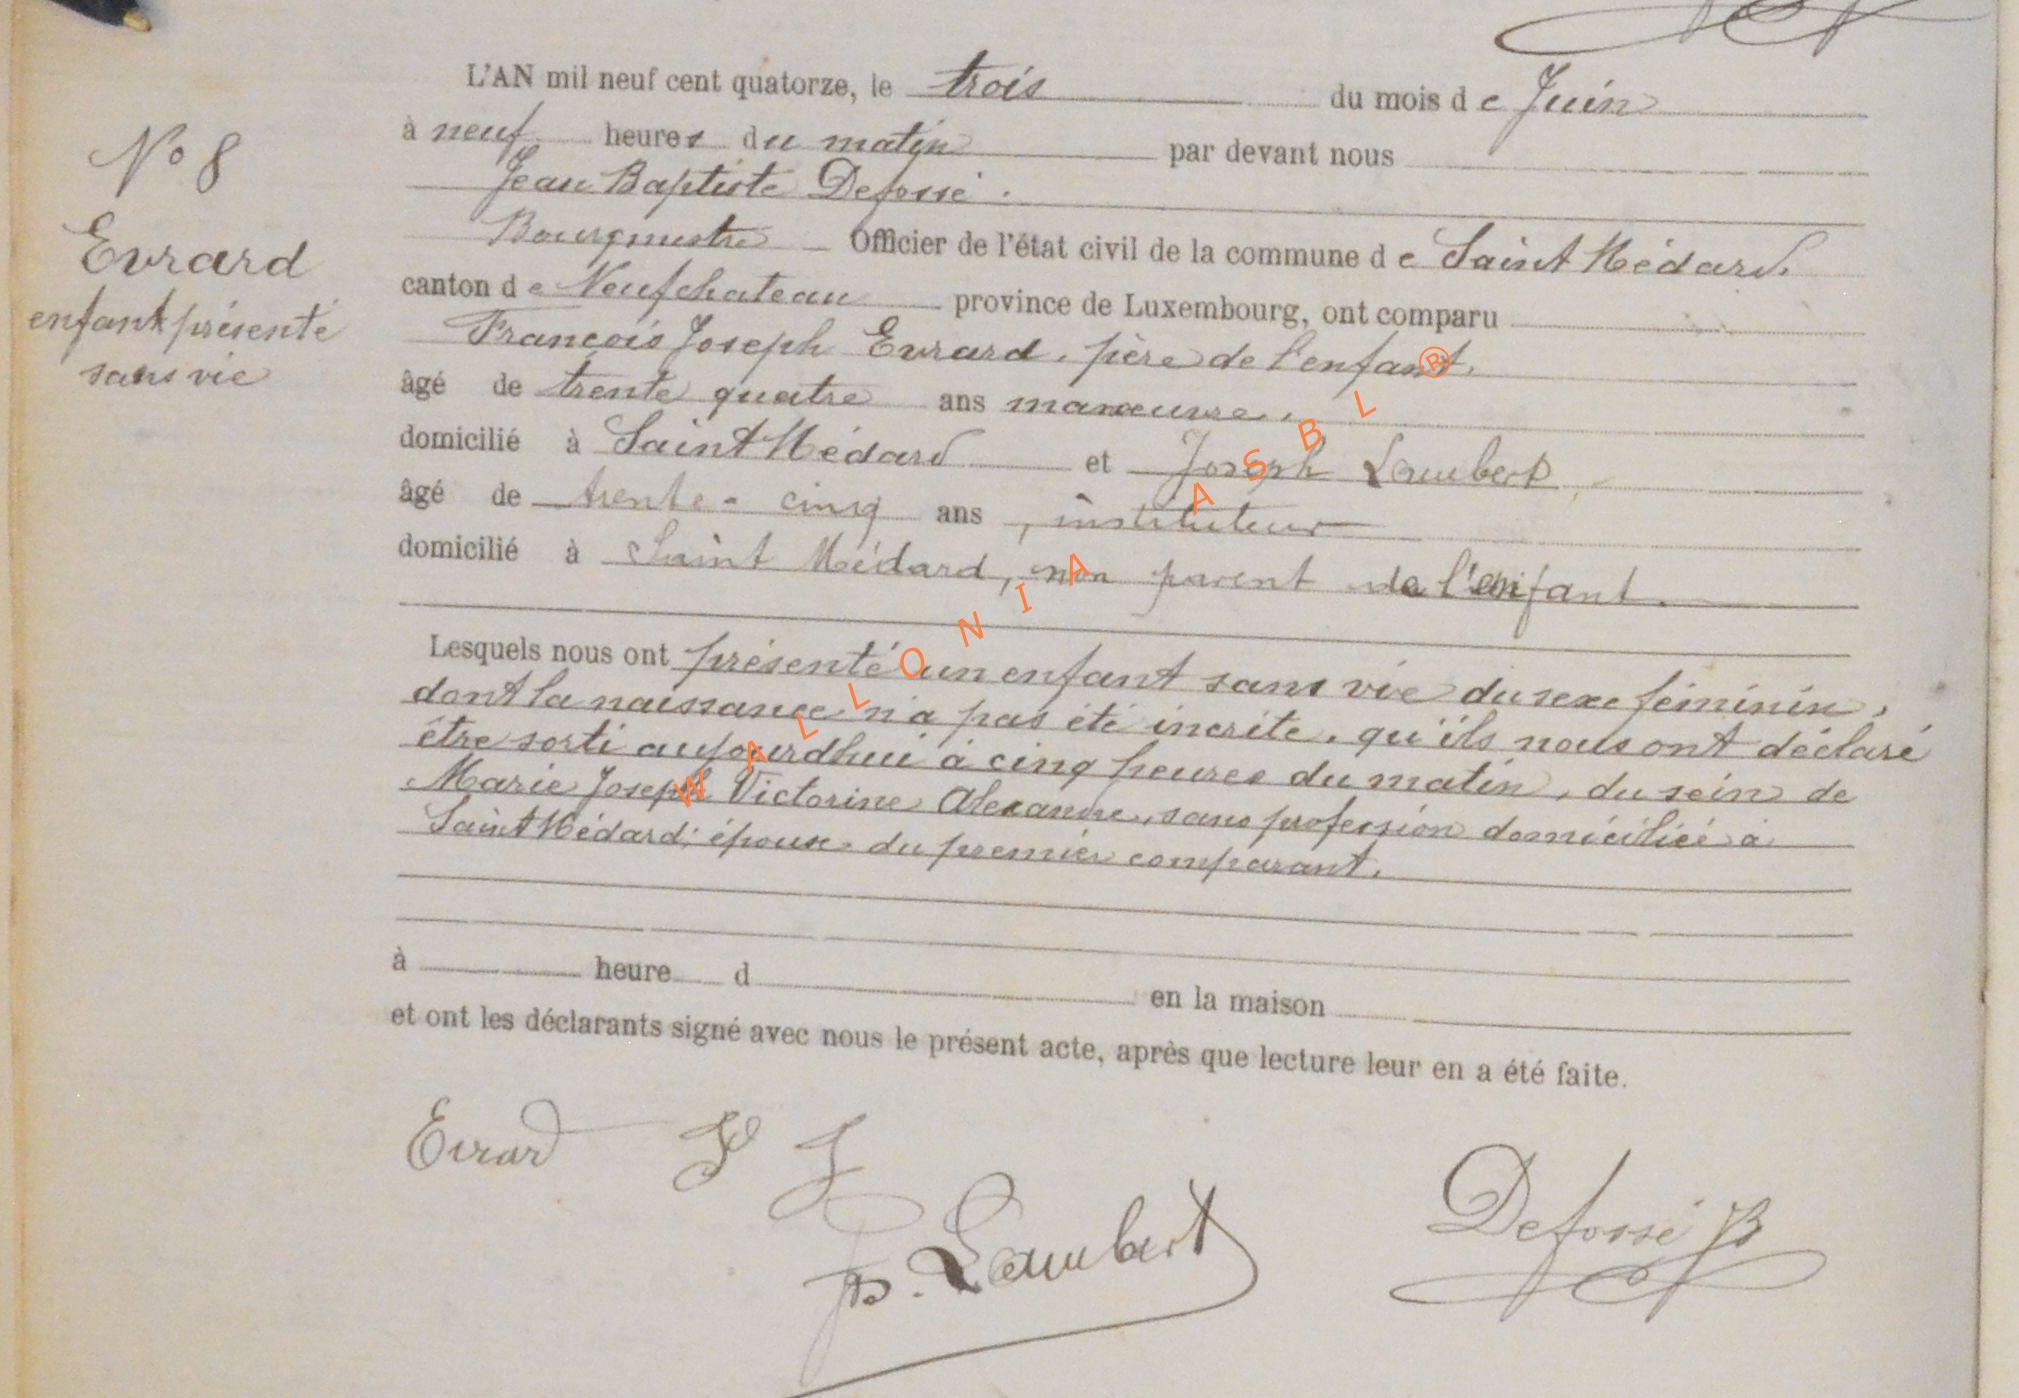 N° 8
Evrard
enfant présenté
sans vie
L'AN mil neuf cent quatorze, le trois du mois de Juin
à neuf heures du matin par devant nous
Jean Baptiste Defossé.
Bourgmestre Officier de l'état civil de la commune de Saint Médard.
canton de Neufchateau province de Luxembourg, ont comparu
François Joseph Evrard, père de l'enfant,
âgé de trente quatre ans manœuvre,
domicilié à Saint Médard et Joseph Lambert,
âgé de trente-cinq ans, instituteur
domicilié à Saint Médard, non parent de l'enfant.
Lesquels nous ont présenté un enfant sans vie du sexe féminin,
dont la naissance n'a pas été incrite, qu'ils nous ont déclaré
être sorti aujourdhui à cinq heures du matin, du sein de
Marie Joseph Victorine Alexandre, sans profession domiciliée à
Saint Médard, épouse du premier comparant.
à heure d en la maison
et ont les déclarants signé avec nous le présent acte, après que lecture leur en a été faite.
Evrard F J
Lambert
Defossé JB
WALLONIA ASBL ®